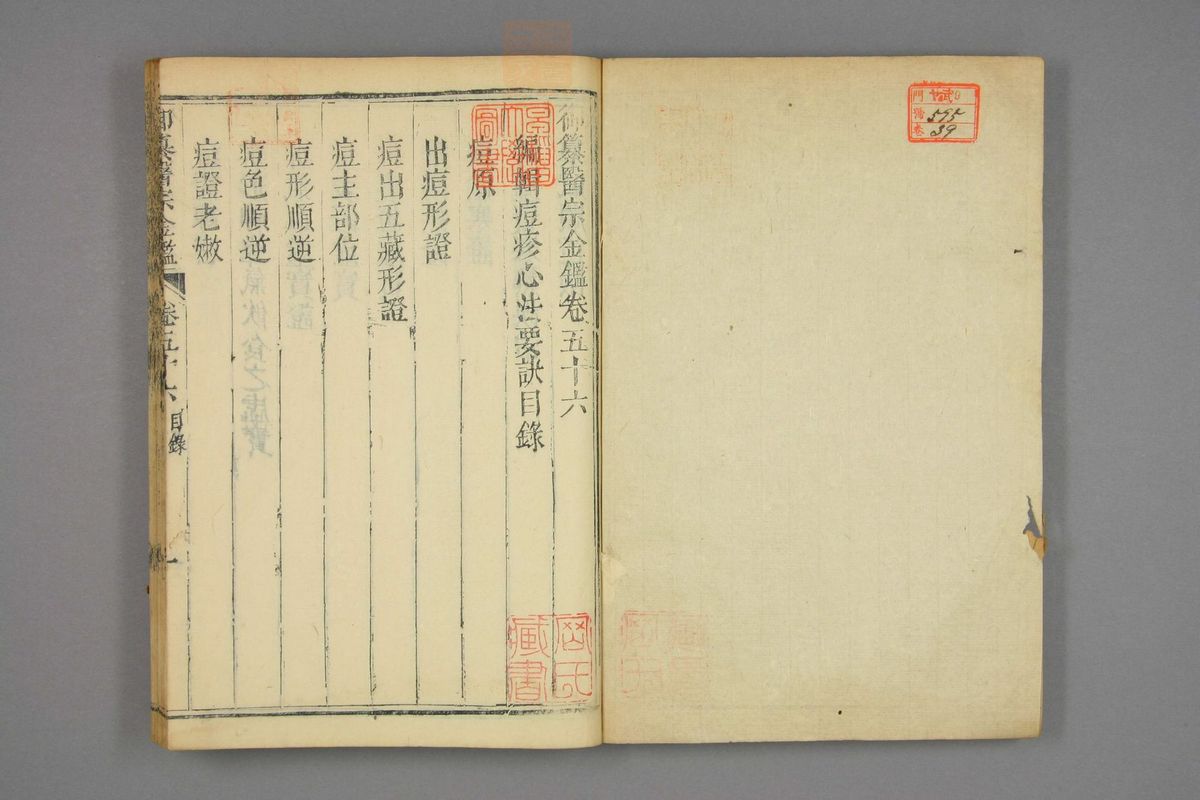 御纂醫宗金鑑卷五十六
編輯痘疹心法要訣目錄
痘原
出痘形證
痘出五藏形證
痘主部位
痘形順逆
痘色順逆
痘證老嫩
御纂醫宗金鑑 卷五十六 目錄 一
藏書
門
號 595
卷 39